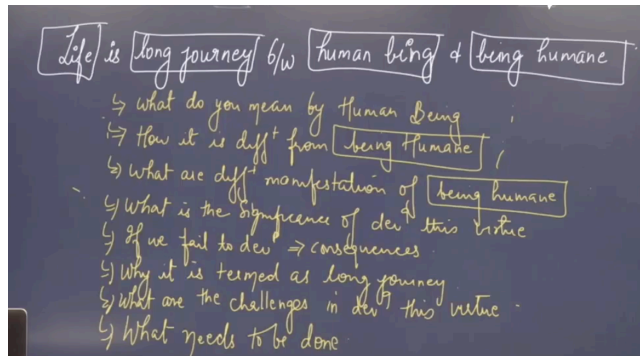 Life is long journey b/w human being & being humane
↳ what do you mean by Human Being
↳ How it is diff^t from being Humane
↳ What are diff^t manifestation of being humane
↳ What is the significance of dev^g this virtue
↳ If we fail to dev^p ⇒ consequences
↳ Why it is termed as long journey
↳ What are the challenges in dev^g this virtue
↳ What needs to be done